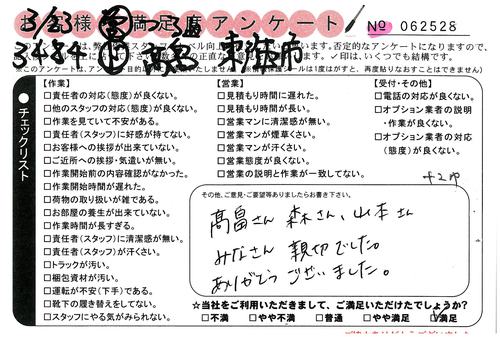 お客様満足度アンケート
No 062528
●チェックリスト
【作業】
□責任者の対応(態度)が良くない。
□他のスタッフの対応(態度)が良くない。
□作業を見ていて不安がある。
□責任者(スタッフ)に好感が持てない。
□お客様への挨拶が出来ていない。
□ご近所への挨拶・気遣いが無い。
□作業開始前の内容確認がなかった。
□作業開始時間が遅れた。
□荷物の取り扱いが雑である。
□お部屋の養生が出来ていない。
□作業時間が長すぎる。
□責任者(スタッフ)に清潔感が無い。
□責任者(スタッフ)が汗くさい。
□トラックが汚い。
□梱包資材が汚い。
□運転が不安(下手)である。
□靴下の履き替えをしてない。
□スタッフにやる気がみられない。
【営業】
□見積もり時間に遅れた。
□見積もり時間が長い。
□営業マンに清潔感が無い。
□営業マンが煙草くさい。
□営業マンが汗くさい。
□営業態度が良くない。
□営業の説明と作業が一致してない。
【受付・その他】
□電話の対応が良くない。
□オプション業者の説明
・作業が良くない。
□オプション業者の対応
(態度)が良くない。
その他、ご意見・ご要望等ありましたらお書き下さい。
髙畠さん 森さん、山本さん
みなさん 親切でした。
ありがとうございました。
☆当社をご利用いただきまして、ご満足いただけたでしょうか?
□不満 □やや不満 □普通 □やや満足 □満足